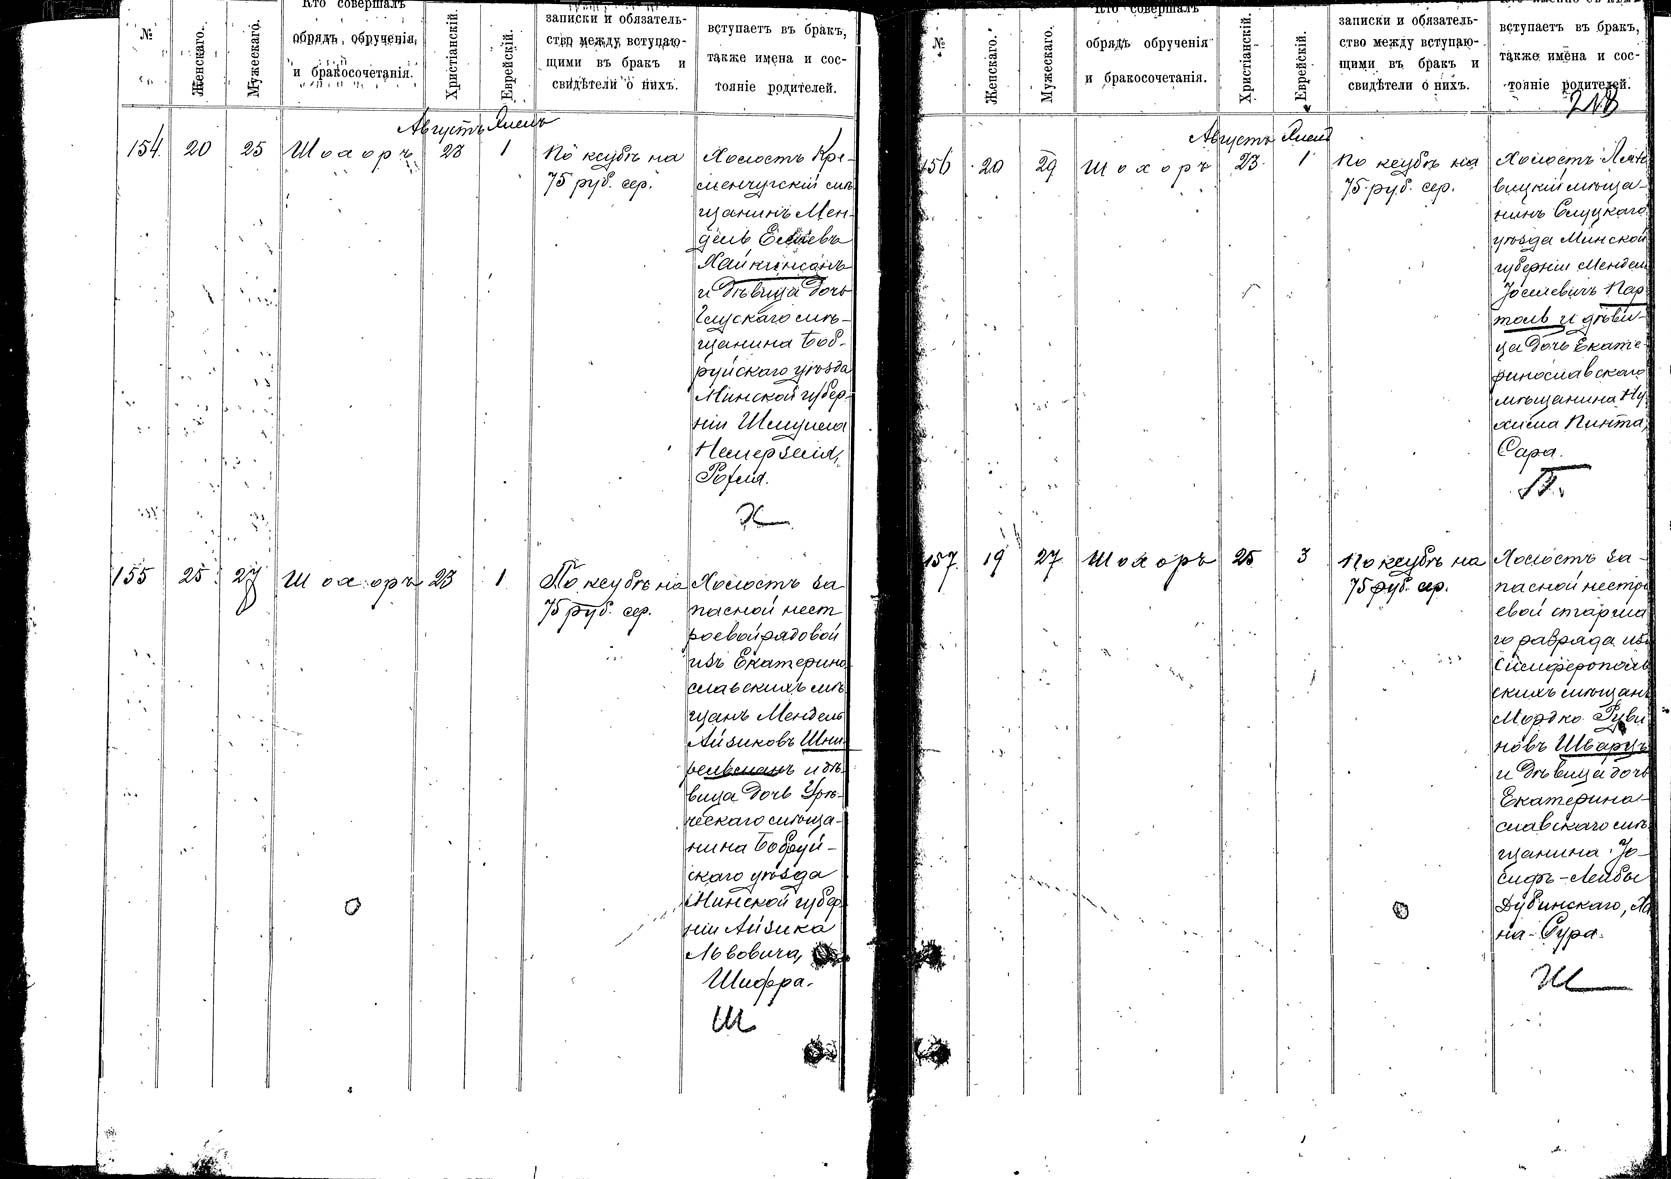 №
Женскаго.
Мужескаго.
Кто совершалъ
обрядъ обрученія
и бракосочетанія.
Христіанскій.
Еврейскій.
записки и обязатель-
ство между вступаю-
щими въ бракъ и
свидѣтели о нихъ.
вступаетъ въ бракъ,
также имена и сос-
тояніе родителей.
Августъ
154 20 25 Шохоръ 23 1
По ксубѣ на
75 руб. сер.
Холостъ Кре-
менчугскій мѣ-
щанинъ Мен-
дель
и дѣвица дочь
Глускаго мѣ-
щанина Боб-
руйскаго уѣзда
Минской губер-
ніи Шмуила
Х
155 25 27 Шохоръ 23 1
По ксубѣ на
75 руб. сер.
Холостъ за
пасной нест
роевой рядовой
изъ Екатерино
славскихъ мѣ
щанъ Мендель
Айзиковъ Шни
рельманъ и дѣ-
вица дочь
мѣща-
нина Бобруй-
скаго уѣзда
Минской губер
ніи Айзика
Львовича,
Шифра.
Ш
№
Женскаго.
Мужескаго.
Кто совершалъ
обрядъ обрученія
и бракосочетанія.
Христіанскій.
Еврейскій.
записки и обязатель-
ство между вступаю-
щими въ бракъ и
свидѣтели о нихъ.
вступаетъ въ бракъ,
также имена и сос-
тояніе родителей.
218
Августъ
156 20 29 Шохоръ 23 1
По ксубѣ на
75 руб. сер.
Холостъ
вицкій мѣща-
нинъ Слуцкаго
уѣзда Минской
губерніи Мендель
Іоселевичъ Пар
толь и дѣви-
ца дочь Екате-
ринославскаго
мѣщанина Ну
хима Пинта,
Сара.
П.
157 19 27 Шохоръ 25 3
По ксубѣ на
75 руб. сер.
Холостъ за-
пасной нестро
евой старша
го разряда изъ
Симферополь
скихъ мѣщанъ
Мордко Руви
новъ Шварцъ
и дѣвица дочь
Екатерино-
славскаго мѣ
щанина Іо-
сифъ-Лейбы
Дубинскаго, Ха
на-Сура.
Ш